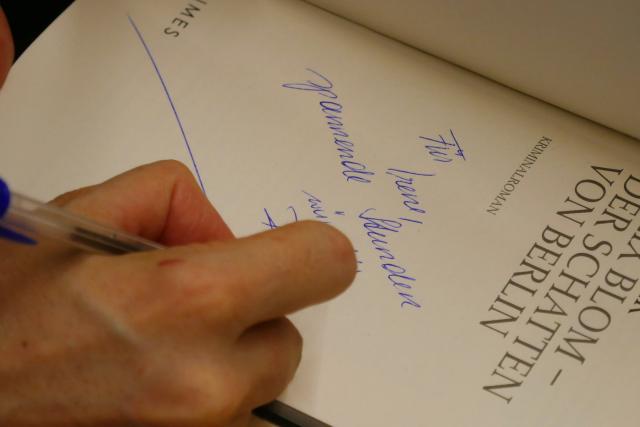 BLOM –
DER SCHATTEN
VON BERLIN
KRIMINALROMAN
Für Irene,
spannende Stunden